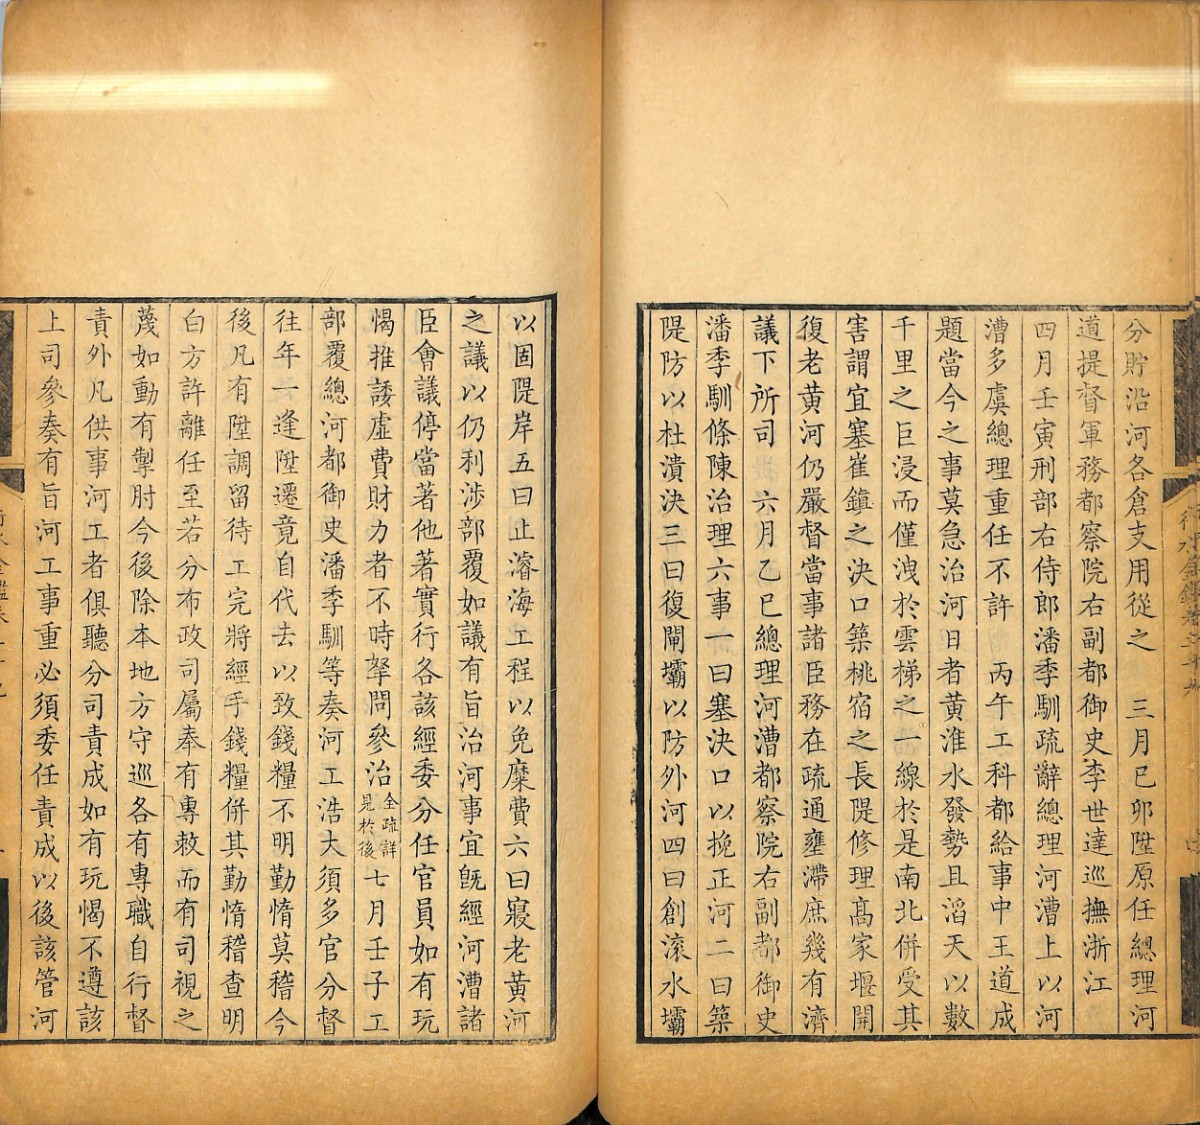 分貯沿河各倉支用從之　三月己卯陞原任總理河
道提督軍務都察院右副都御史李世達巡撫浙江
四月壬寅刑部右侍郎潘季馴疏辭總理河漕上以河
漕多虞總理重任不許　丙午工科都給事中王道成
題當今之事莫急治河日者黃淮水發勢且滔天以數
千里之巨浸而僅洩於雲梯之一線於是南北併受其
害謂宜塞崔鎮之決口築桃宿之長隄修理高家堰開
復老黃河仍嚴督當事諸臣務在疏通壅滯庶幾有濟
議下所司　六月乙巳總理河漕都察院右副都御史
潘季馴條陳治理六事一曰塞決口以挽正河二曰築
隄防以杜潰決三曰復閘壩以防外河四曰創滾水壩
以固隄岸五曰止濬海工程以免糜費六曰寢老黃河
之議以仍利涉部覆如議有旨治河事宜既經河漕諸
臣會議停當著他著實行各該經委分任官員如有玩
愒推諉虛費財力者不時拏問參治全疏詳見於後七月壬子工
部覆總河都御史潘季馴等奏河工浩大須多官分督
往年一逢陞遷竟自代去以致錢糧不明勤惰莫稽今
後凡有陞調留待工完將經手錢糧併其勤惰稽查明
白方許離任至若分布政司屬奉有專敕而有司視之
蔑如動有掣肘今後除本地方守巡各有專職自行督
責外凡供事河工者俱聽分司責成如有玩愒不遵該
上司參奏有旨河工事重必須委任責成以後該管河